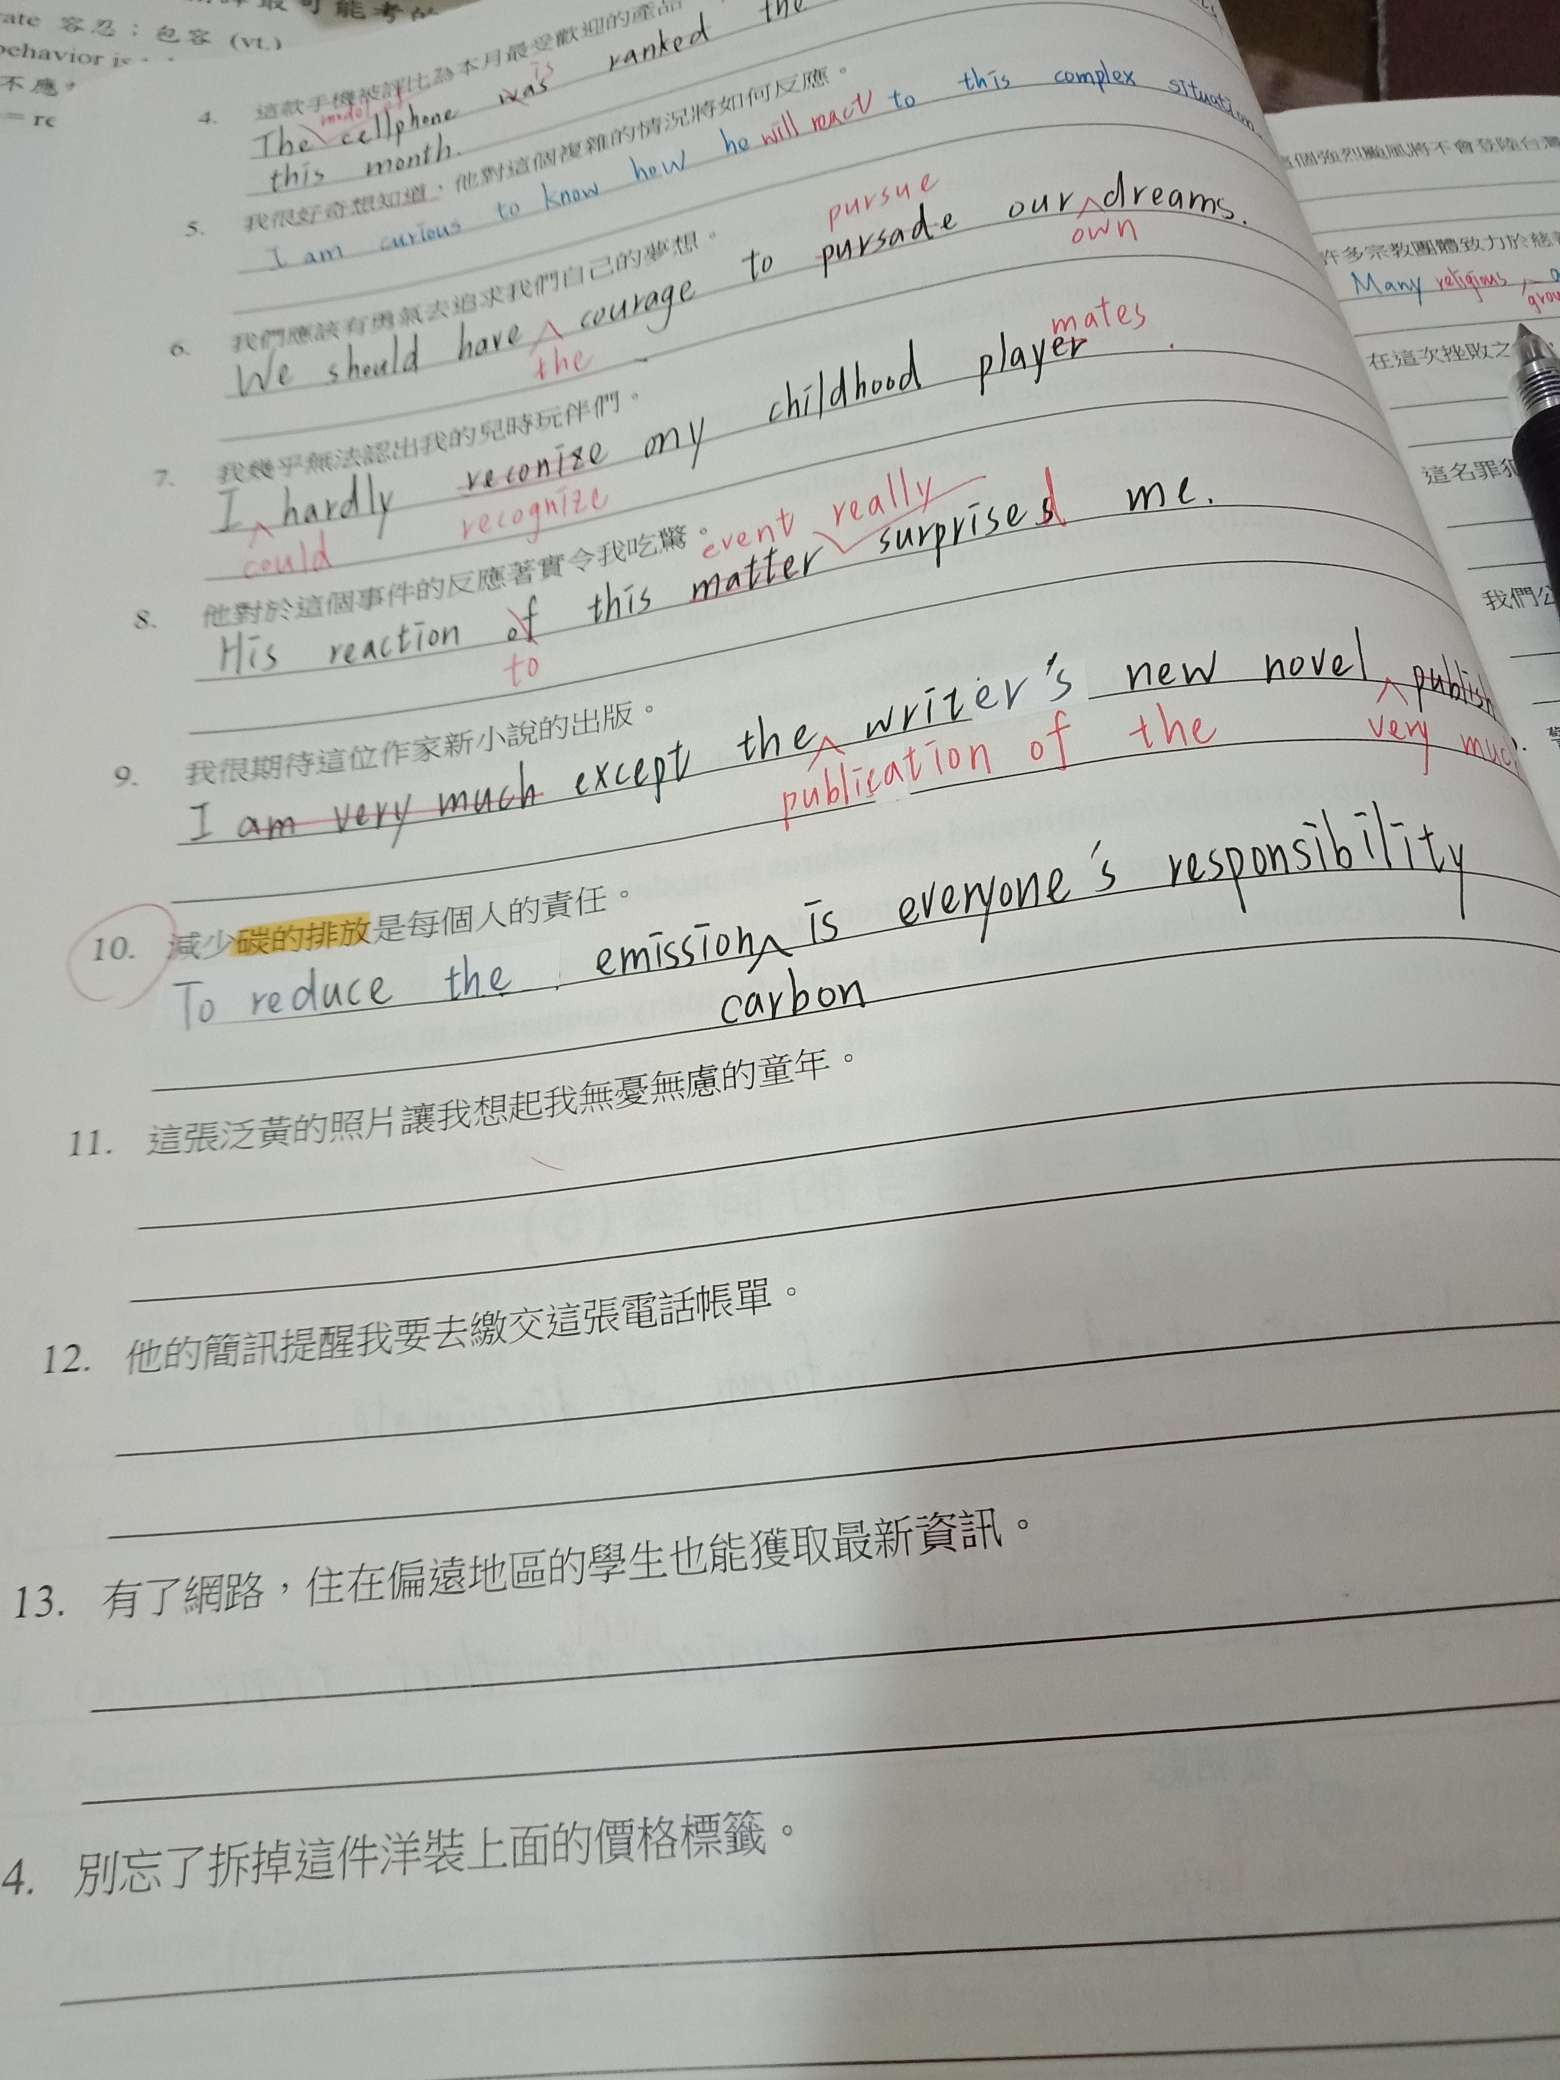 ate 容忍；包容 (vt.)
behavior is
不應
= re
4. 這款手機被評比為本月最受歡迎的產品
is
The cellphone was ranked the
model of
this month.
5. 我很好奇想知道，他對這個複雜的情況將如何反應。
I am curious to know how he will react to this complex situation
6. 我們應該有勇氣去追求我們自己的夢想。
pursue
We should have courage to pursade our dreams.
the
own
7. 我幾乎無法認出我的兒時玩伴們。
mates
I hardly reconize my childhood player.
could
recognize
8. 他對於這個事件的反應著實令我吃驚。
event really
His reaction of this matter surprised me.
to
9. 我很期待這位作家新小說的出版。
I am very much except the writer's new novel publish
publication of the
very much.
10. 減少碳的排放是每個人的責任。
To reduce the emission is everyone's responsibility
carbon
11. 這張泛黃的照片讓我想起我無憂無慮的童年。
12. 他的簡訊提醒我要去繳交這張電話帳單。
13. 有了網路，住在偏遠地區的學生也能獲取最新資訊。
4. 別忘了拆掉這件洋裝上面的價格標籤。
個強烈颱風將不會登陸台灣
許多宗教團體致力於慈
Many religious
在這次挫敗之
這名罪犯
我們公